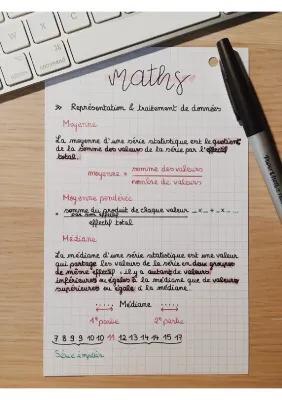 maths
>> Représentation & traitement de données
Moyenne
La moyenne d'une série statistique est le quotient
de la somme des valeurs de la série par l'effectif
total.
moyenne = somme des valeurs
nombre de valeurs
Moyenne pondérée
= somme du produit de chaque valeur
par son effectif
effectif total
Médiane
La médiane d'une série statistique est une valeur
qui partage les valeurs de la série en deux groupes
de même effectif : il y a autant de valeurs
inférieures ou égales à la médiane que de valeurs
supérieures ou égale à la médiane.
Médiane
1e partie 2e partie
7 8 9 9 10 10 11 12 13 14 14 15 17
Série impair